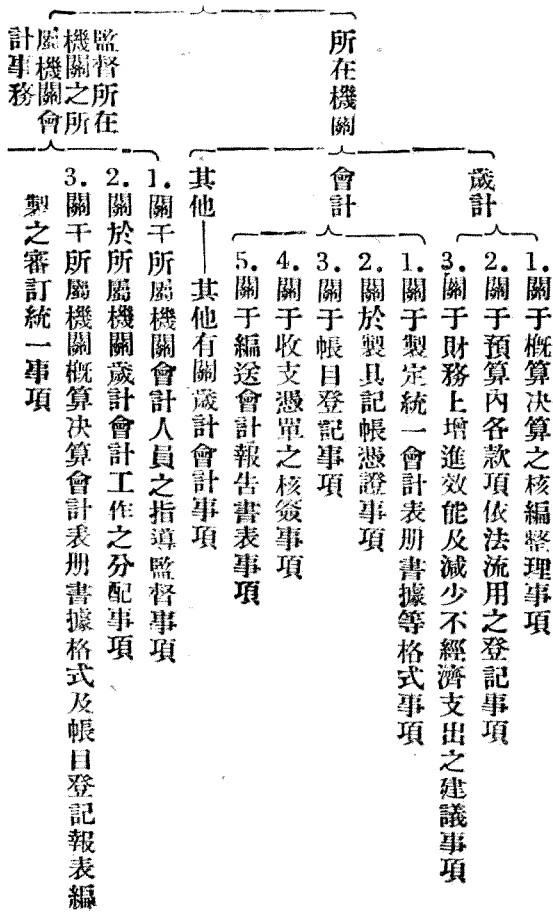 所在機關
歲計
1.關于概算决算之核編整理事項
2.關于預算內各款項依法流用之登記事項
3.關于財務上增進效能及減少不經濟支出之建議事項
會計
1.關于製定統一會計表册書據等格式事項
2.關於製具記帳憑證事項
3.關于帳目登記事項
4.關于收支憑單之核簽事項
5.關于編送會計報告書表事項
其他——其他有關歲計會計事項
監督所在
機關之所
屬機關會
計事務
1.關于所屬機關會計人員之指導監督事項
2.關於所屬機關歲計會計工作之分配事項
3.關于所屬機關概算决算會計表册書據格式及帳目登記報表編
製之審訂統一事項